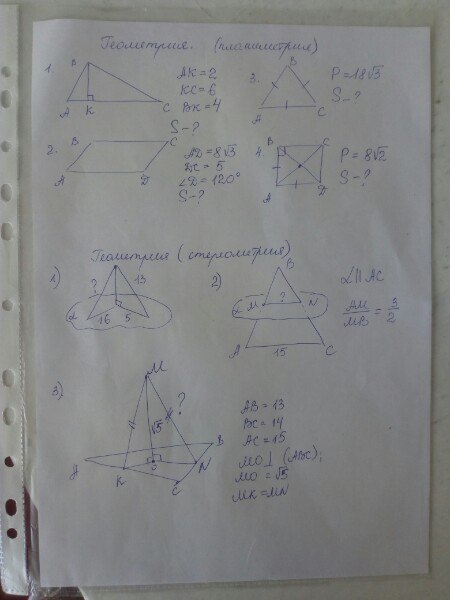 Геометрия. (планиметрия)
1.
B
A K C
AK = 2
KC = 6
BK = 4
S - ?
3.
B
A C
P = 18√3
S - ?
2.
B C
A D
AD = 8√3
DC = 5
∠D = 120°
S - ?
4.
B C
A D
P = 8√2
S - ?
Геометрия (стереометрия)
1)
? 13
α 16 5
2)
B
α M ? N
A 15 C
α || AC
AM/MB = 3/2
3)
M
√5 ?
A B
K O N
C
AB = 13
BC = 14
AC = 15
MO ⊥ (ABC);
MO = √5
MK = MN